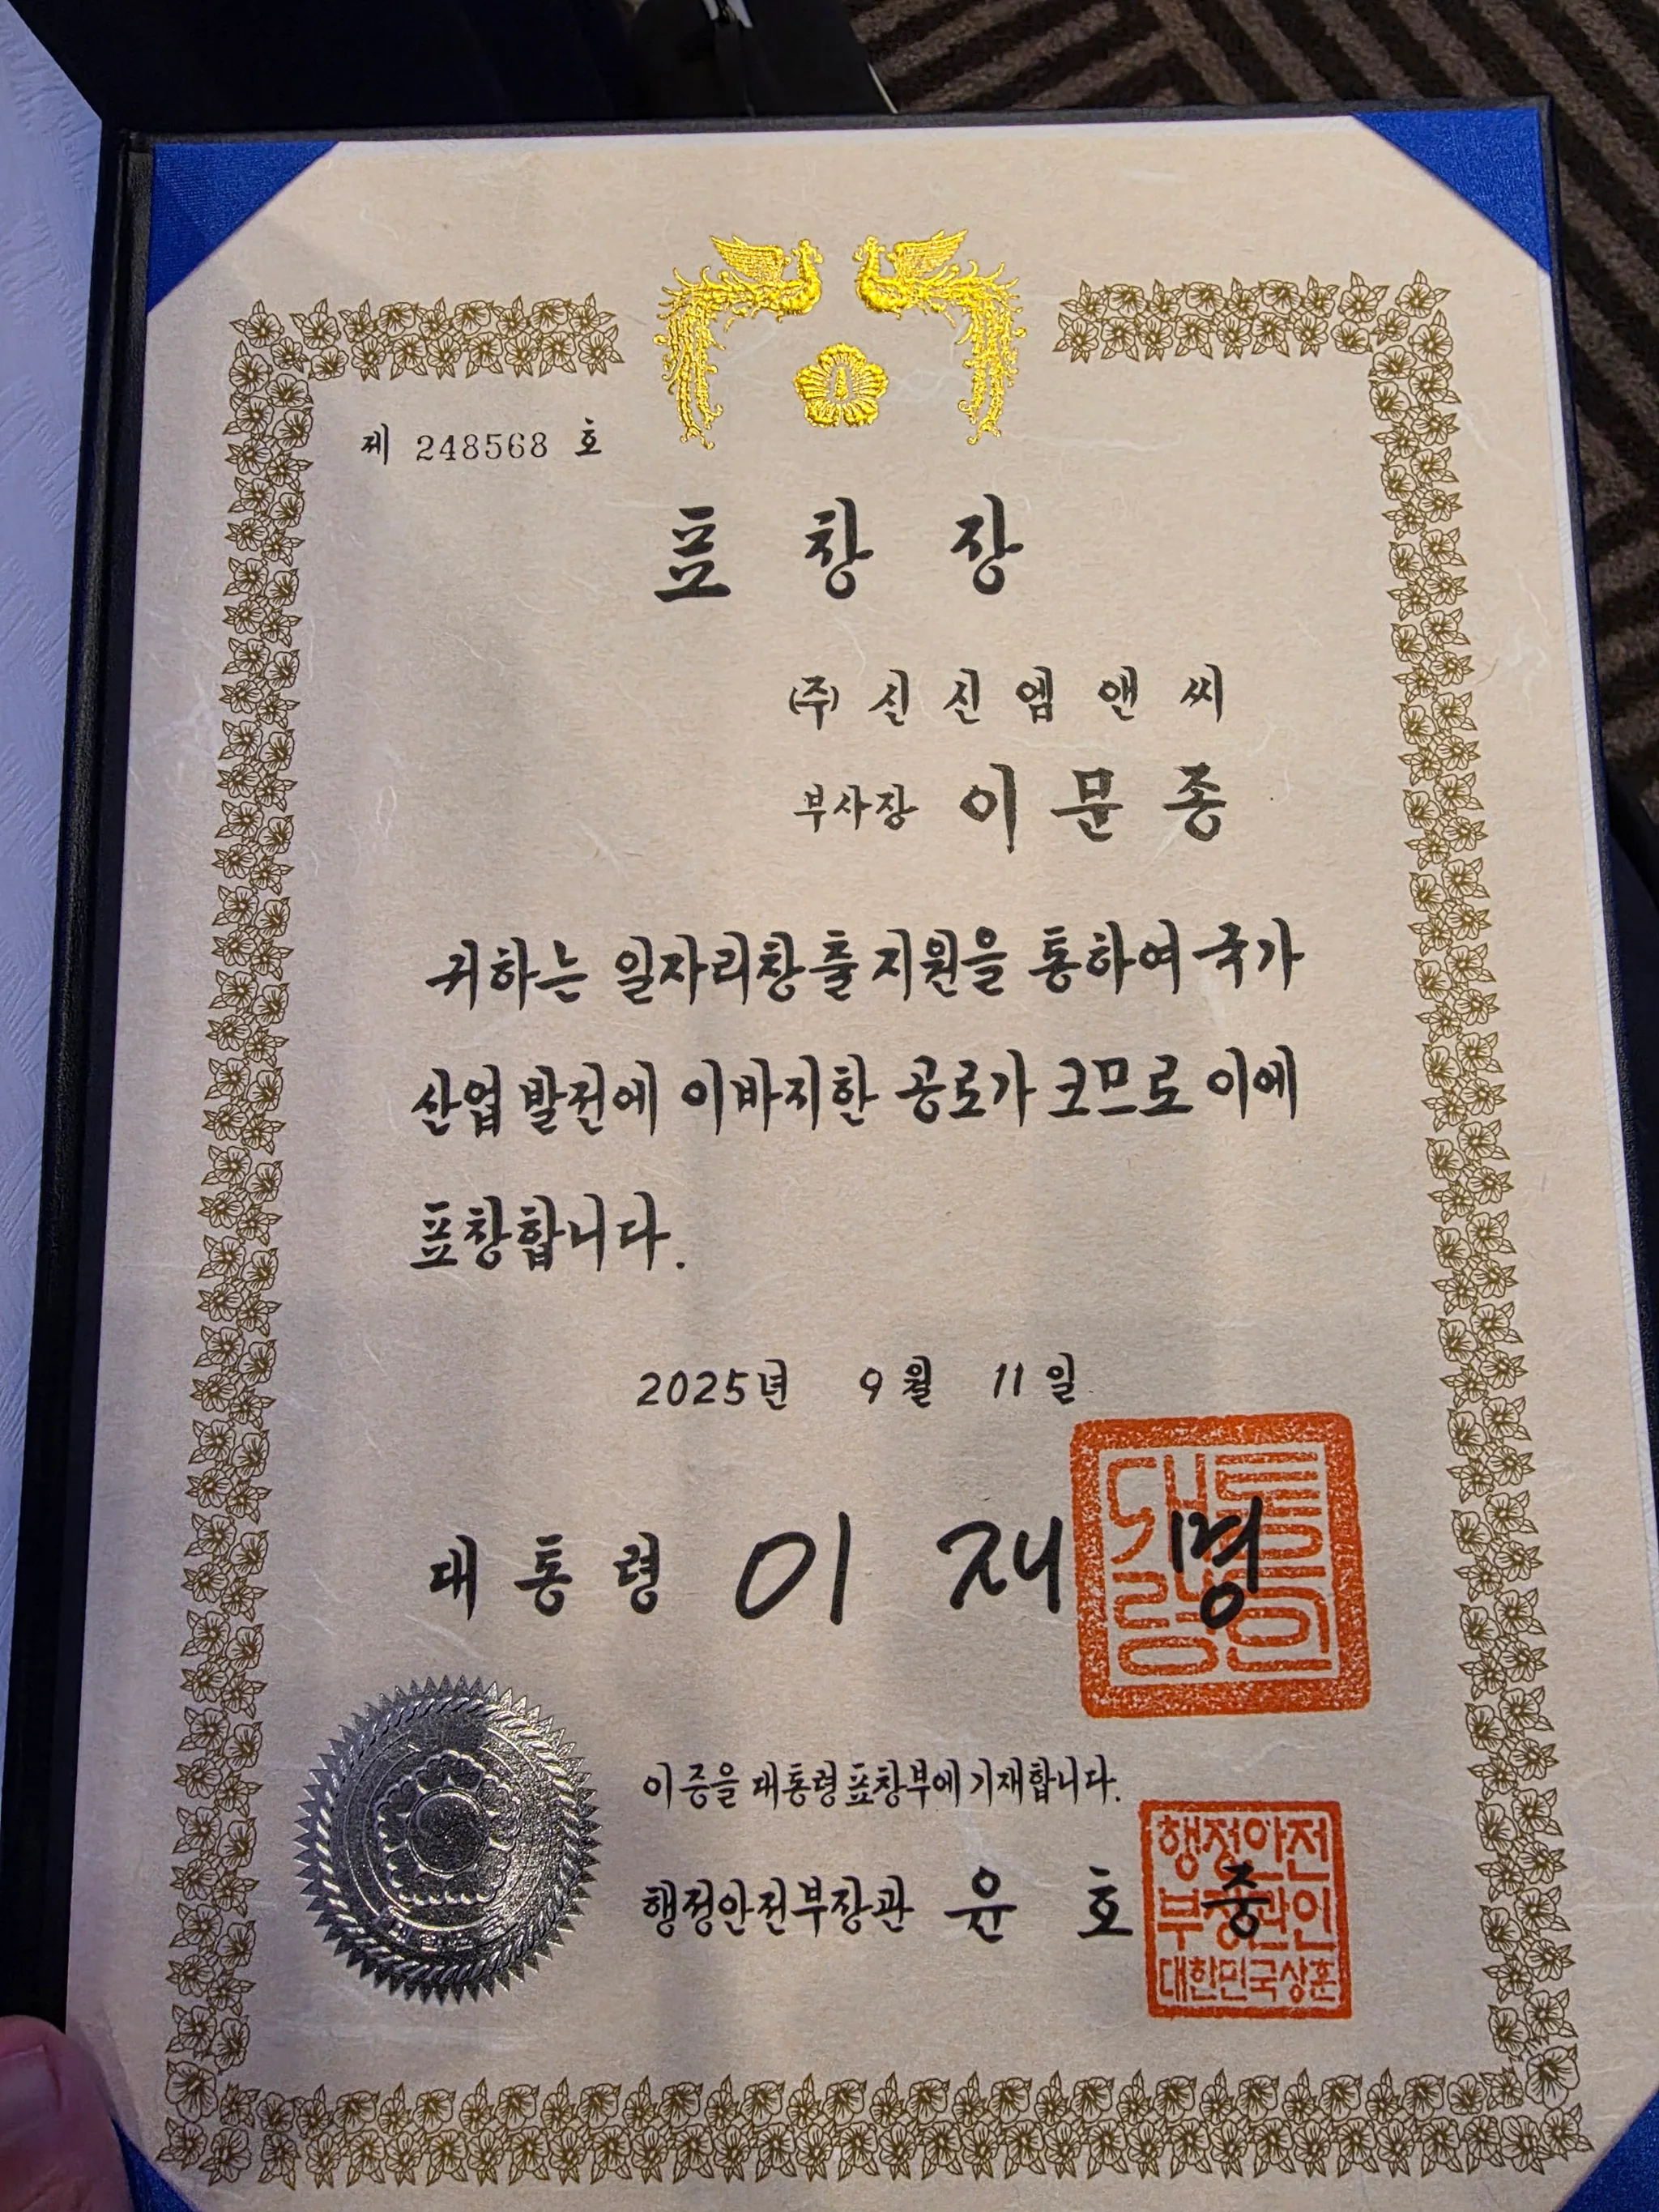 제 248568 호
표 창 장
(주) 신 신 엠 앤 씨
부사장 이 문 종
귀하는 일자리창출 지원을 통하여 국가
산업 발전에 이바지한 공로가 크므로 이에
표창합니다.
2025년 9월 11일
대 통 령 이 재 명
대통령인
이 증을 대통령 표창부에 기재합니다.
행정안전부장관 윤 호 중
행정안전
부장관인
대한민국상훈